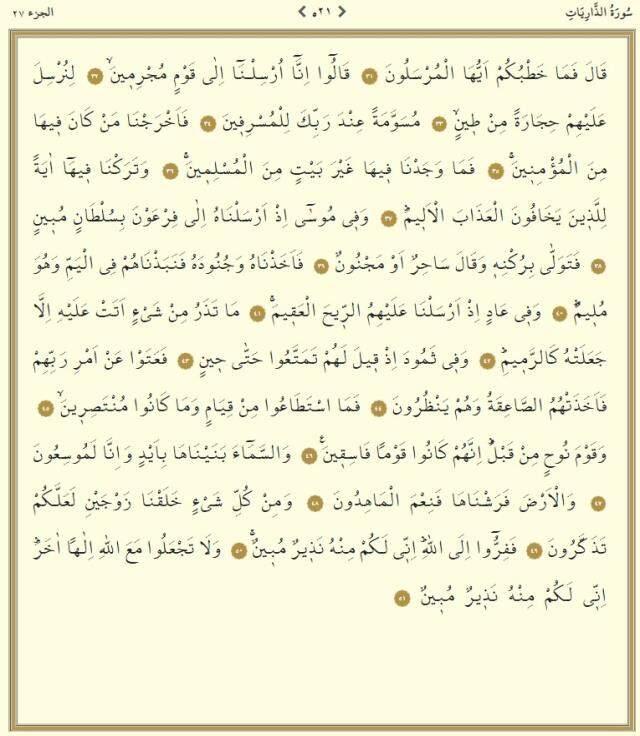 سُورَةُ الذَّارِيَاتِ ٥٢١ الجزء ٢٧
قَالَ فَمَا خَطْبُكُمْ اَيُّهَا الْمُرْسَلُونَ ٣١ قَالُٓوا اِنَّٓا اُرْسِلْنَٓا اِلٰى قَوْمٍ مُجْرِمٖينَۙ ٣٢ لِنُرْسِلَ
عَلَيْهِمْ حِجَارَةً مِنْ طٖينٍۙ ٣٣ مُسَوَّمَةً عِنْدَ رَبِّكَ لِلْمُسْرِفٖينَ ٣٤ فَاَخْرَجْنَا مَنْ كَانَ فٖيهَا
مِنَ الْمُؤْمِنٖينَۚ ٣٥ فَمَا وَجَدْنَا فٖيهَا غَيْرَ بَيْتٍ مِنَ الْمُسْلِمٖينَۚ ٣٦ وَتَرَكْنَا فٖيهَٓا اٰيَةً
لِلَّذٖينَ يَخَافُونَ الْعَذَابَ الْاَلٖيمَؕ ٣٧ وَفٖى مُوسٰٓى اِذْ اَرْسَلْنَاهُ اِلٰى فِرْعَوْنَ بِسُلْطَانٍ مُبٖينٍ
٣٨ فَتَوَلّٰى بِرُكْنِهٖ وَقَالَ سَاحِرٌ اَوْ مَجْنُونٌ ٣٩ فَاَخَذْنَاهُ وَجُنُودَهُ فَنَبَذْنَاهُمْ فِى الْيَمِّ وَهُوَ
مُلٖيمٌؕ ٤٠ وَفٖى عَادٍ اِذْ اَرْسَلْنَا عَلَيْهِمُ الرّٖيحَ الْعَقٖيمَۚ ٤١ مَا تَذَرُ مِنْ شَیْءٍ اَتَتْ عَلَيْهِ اِلَّا
جَعَلَتْهُ كَالرَّمٖيمِؕ ٤٢ وَفٖى ثَمُودَ اِذْ قٖيلَ لَهُمْ تَمَتَّعُوا حَتّٰى حٖينٍ ٤٣ فَعَتَوْا عَنْ اَمْرِ رَبِّهِمْ
فَاَخَذَتْهُمُ الصَّاعِقَةُ وَهُمْ يَنْظُرُونَ ٤٤ فَمَا اسْتَطَاعُوا مِنْ قِيَامٍ وَمَا كَانُوا مُنْتَصِرٖينَۙ ٤٥
وَقَوْمَ نُوحٍ مِنْ قَبْلُؕ اِنَّهُمْ كَانُوا قَوْمًا فَاسِقٖينَۚ ٤٦ وَالسَّمَٓاءَ بَنَيْنَاهَا بِاَيْدٍ وَاِنَّا لَمُوسِعُونَ
٤٧ وَالْاَرْضَ فَرَشْنَاهَا فَنِعْمَ الْمَاهِدُونَ ٤٨ وَمِنْ كُلِّ شَیْءٍ خَلَقْنَا زَوْجَيْنِ لَعَلَّكُمْ
تَذَكَّرُونَ ٤٩ فَفِرُّٓوا اِلَى اللّٰهِؕ اِنّٖى لَكُمْ مِنْهُ نَذٖيرٌ مُبٖينٌۚ ٥٠ وَلَا تَجْعَلُوا مَعَ اللّٰهِ اِلٰهًا اٰخَرَؕ
اِنّٖى لَكُمْ مِنْهُ نَذٖيرٌ مُبٖينٌ ٥١